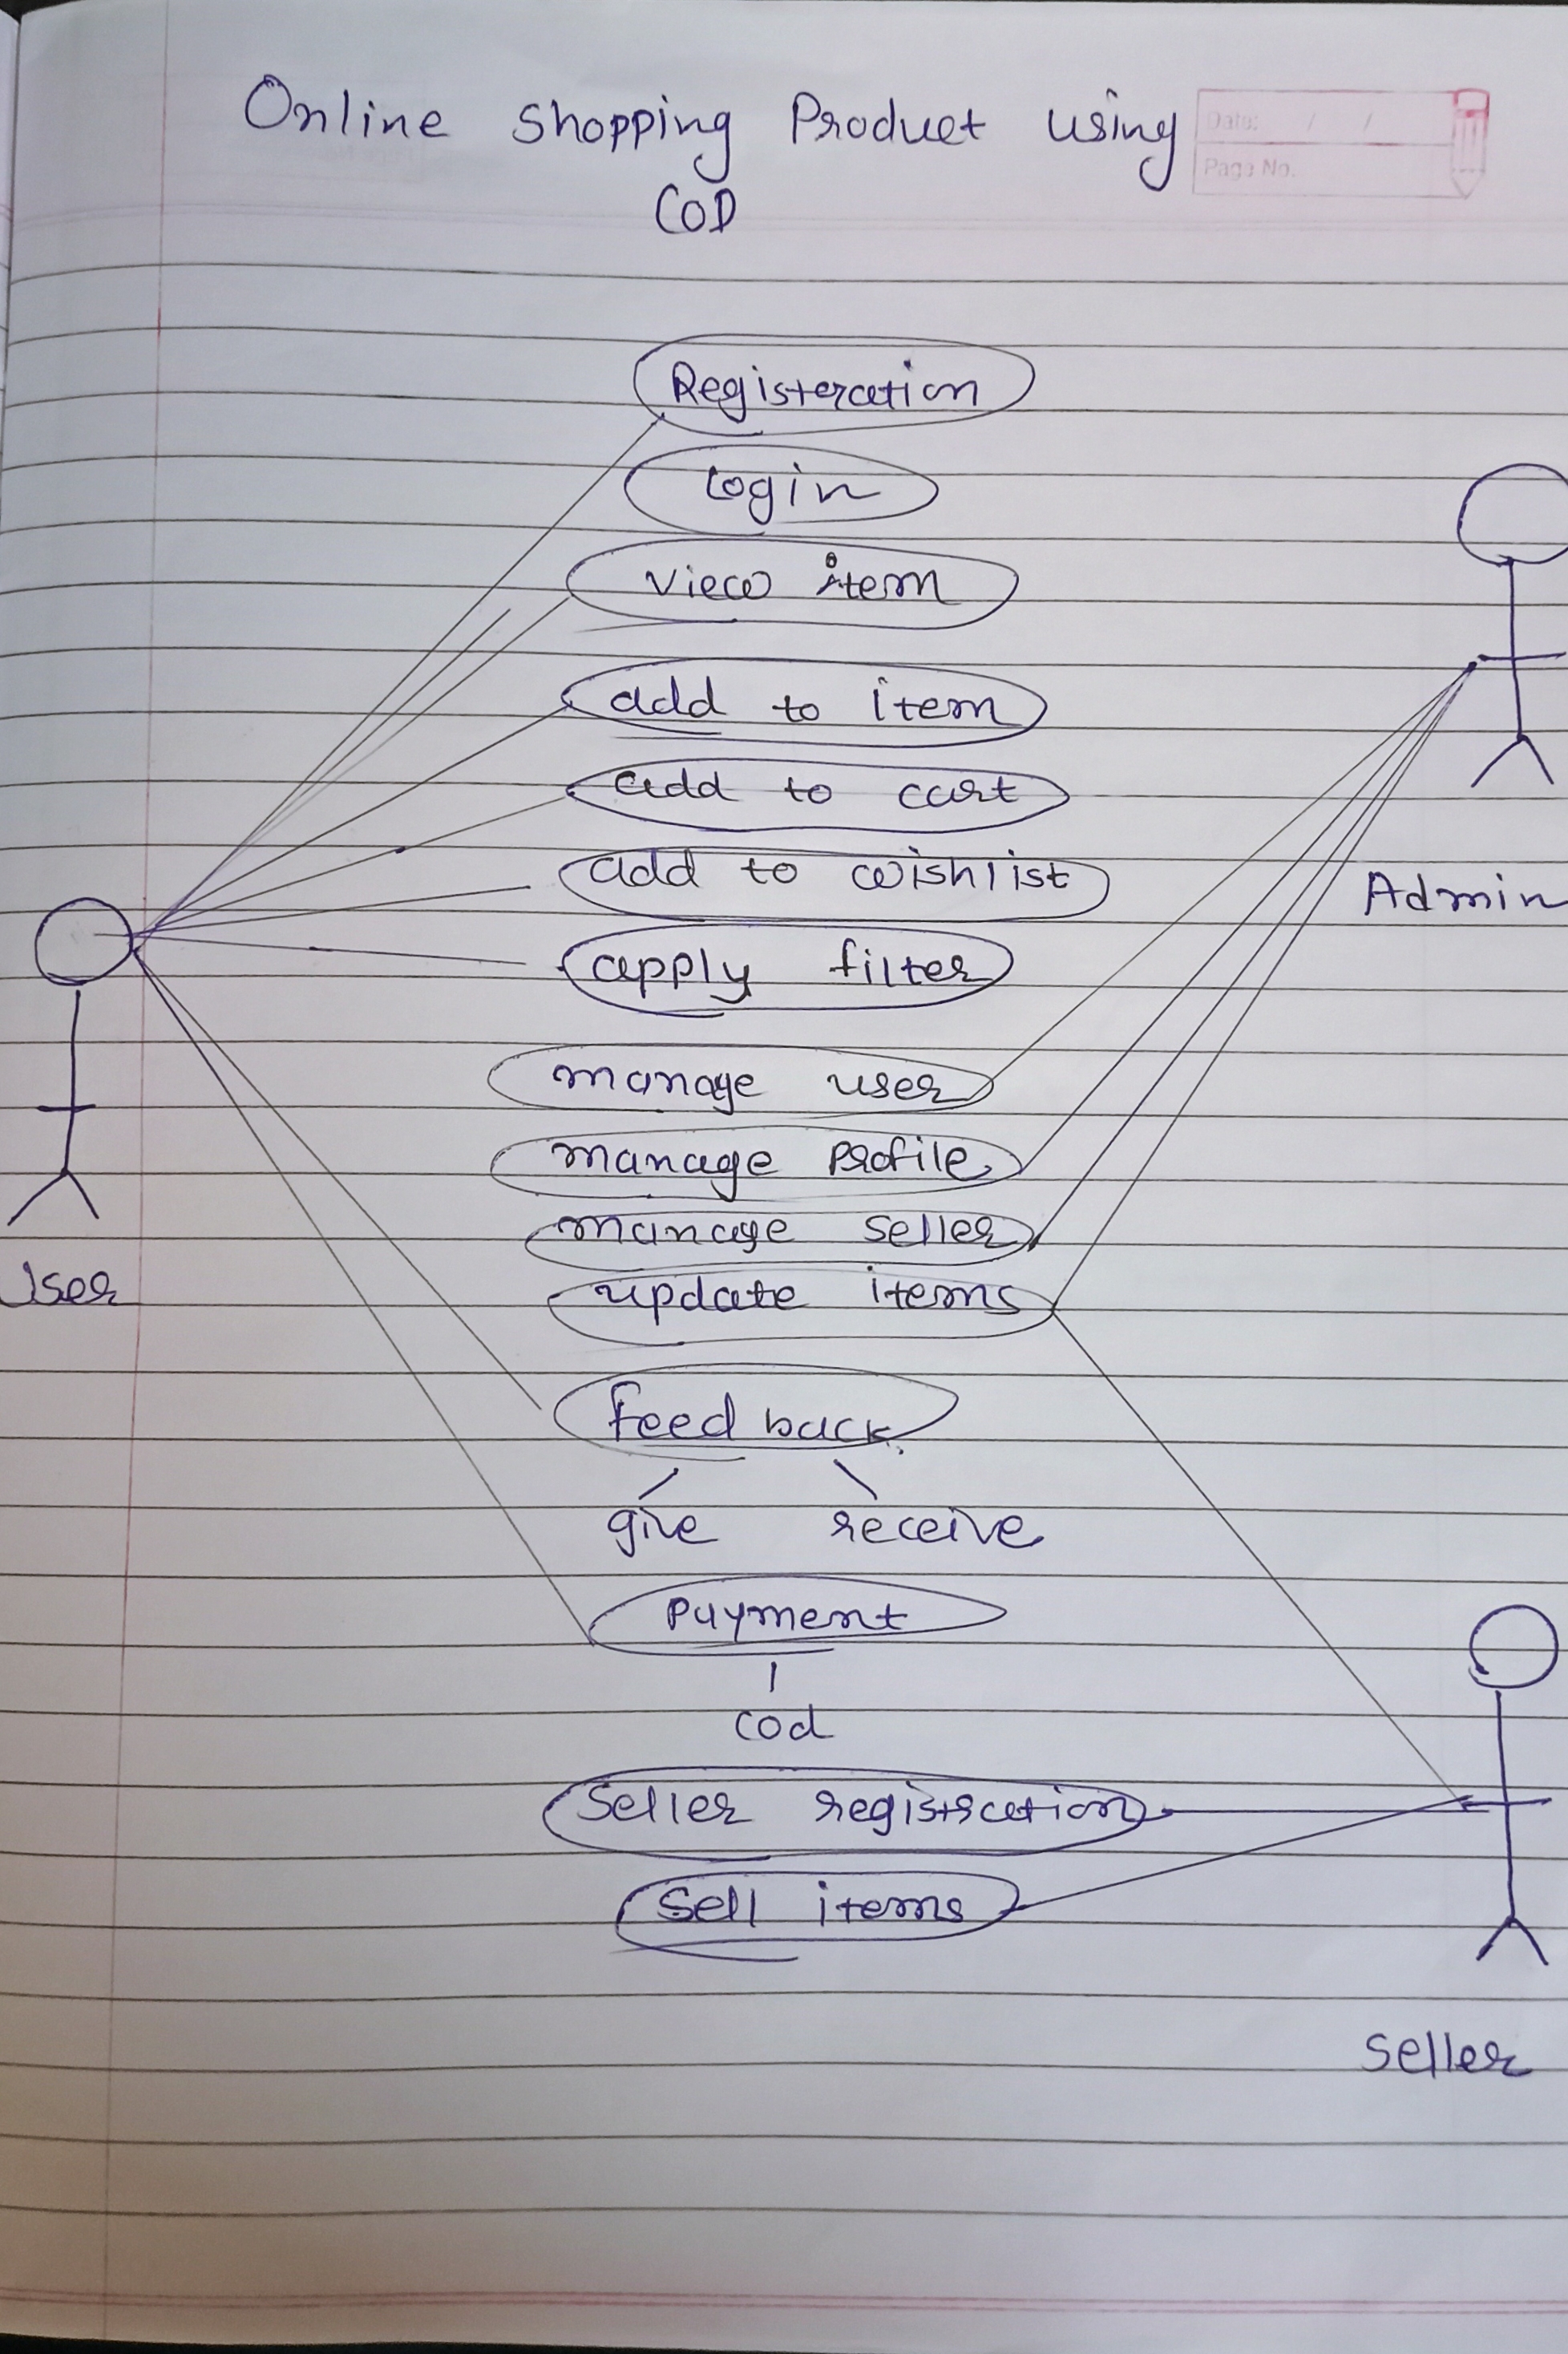 Online shopping Product using
COD
Date: / /
Page No.
Registeration
Login
View item
add to item
add to cart
add to wishlist
Admin
apply filter
manage user
manage Profile
manage seller
User
update items
feed back
give receive
Payment
cod
Seller registration
Sell items
Seller